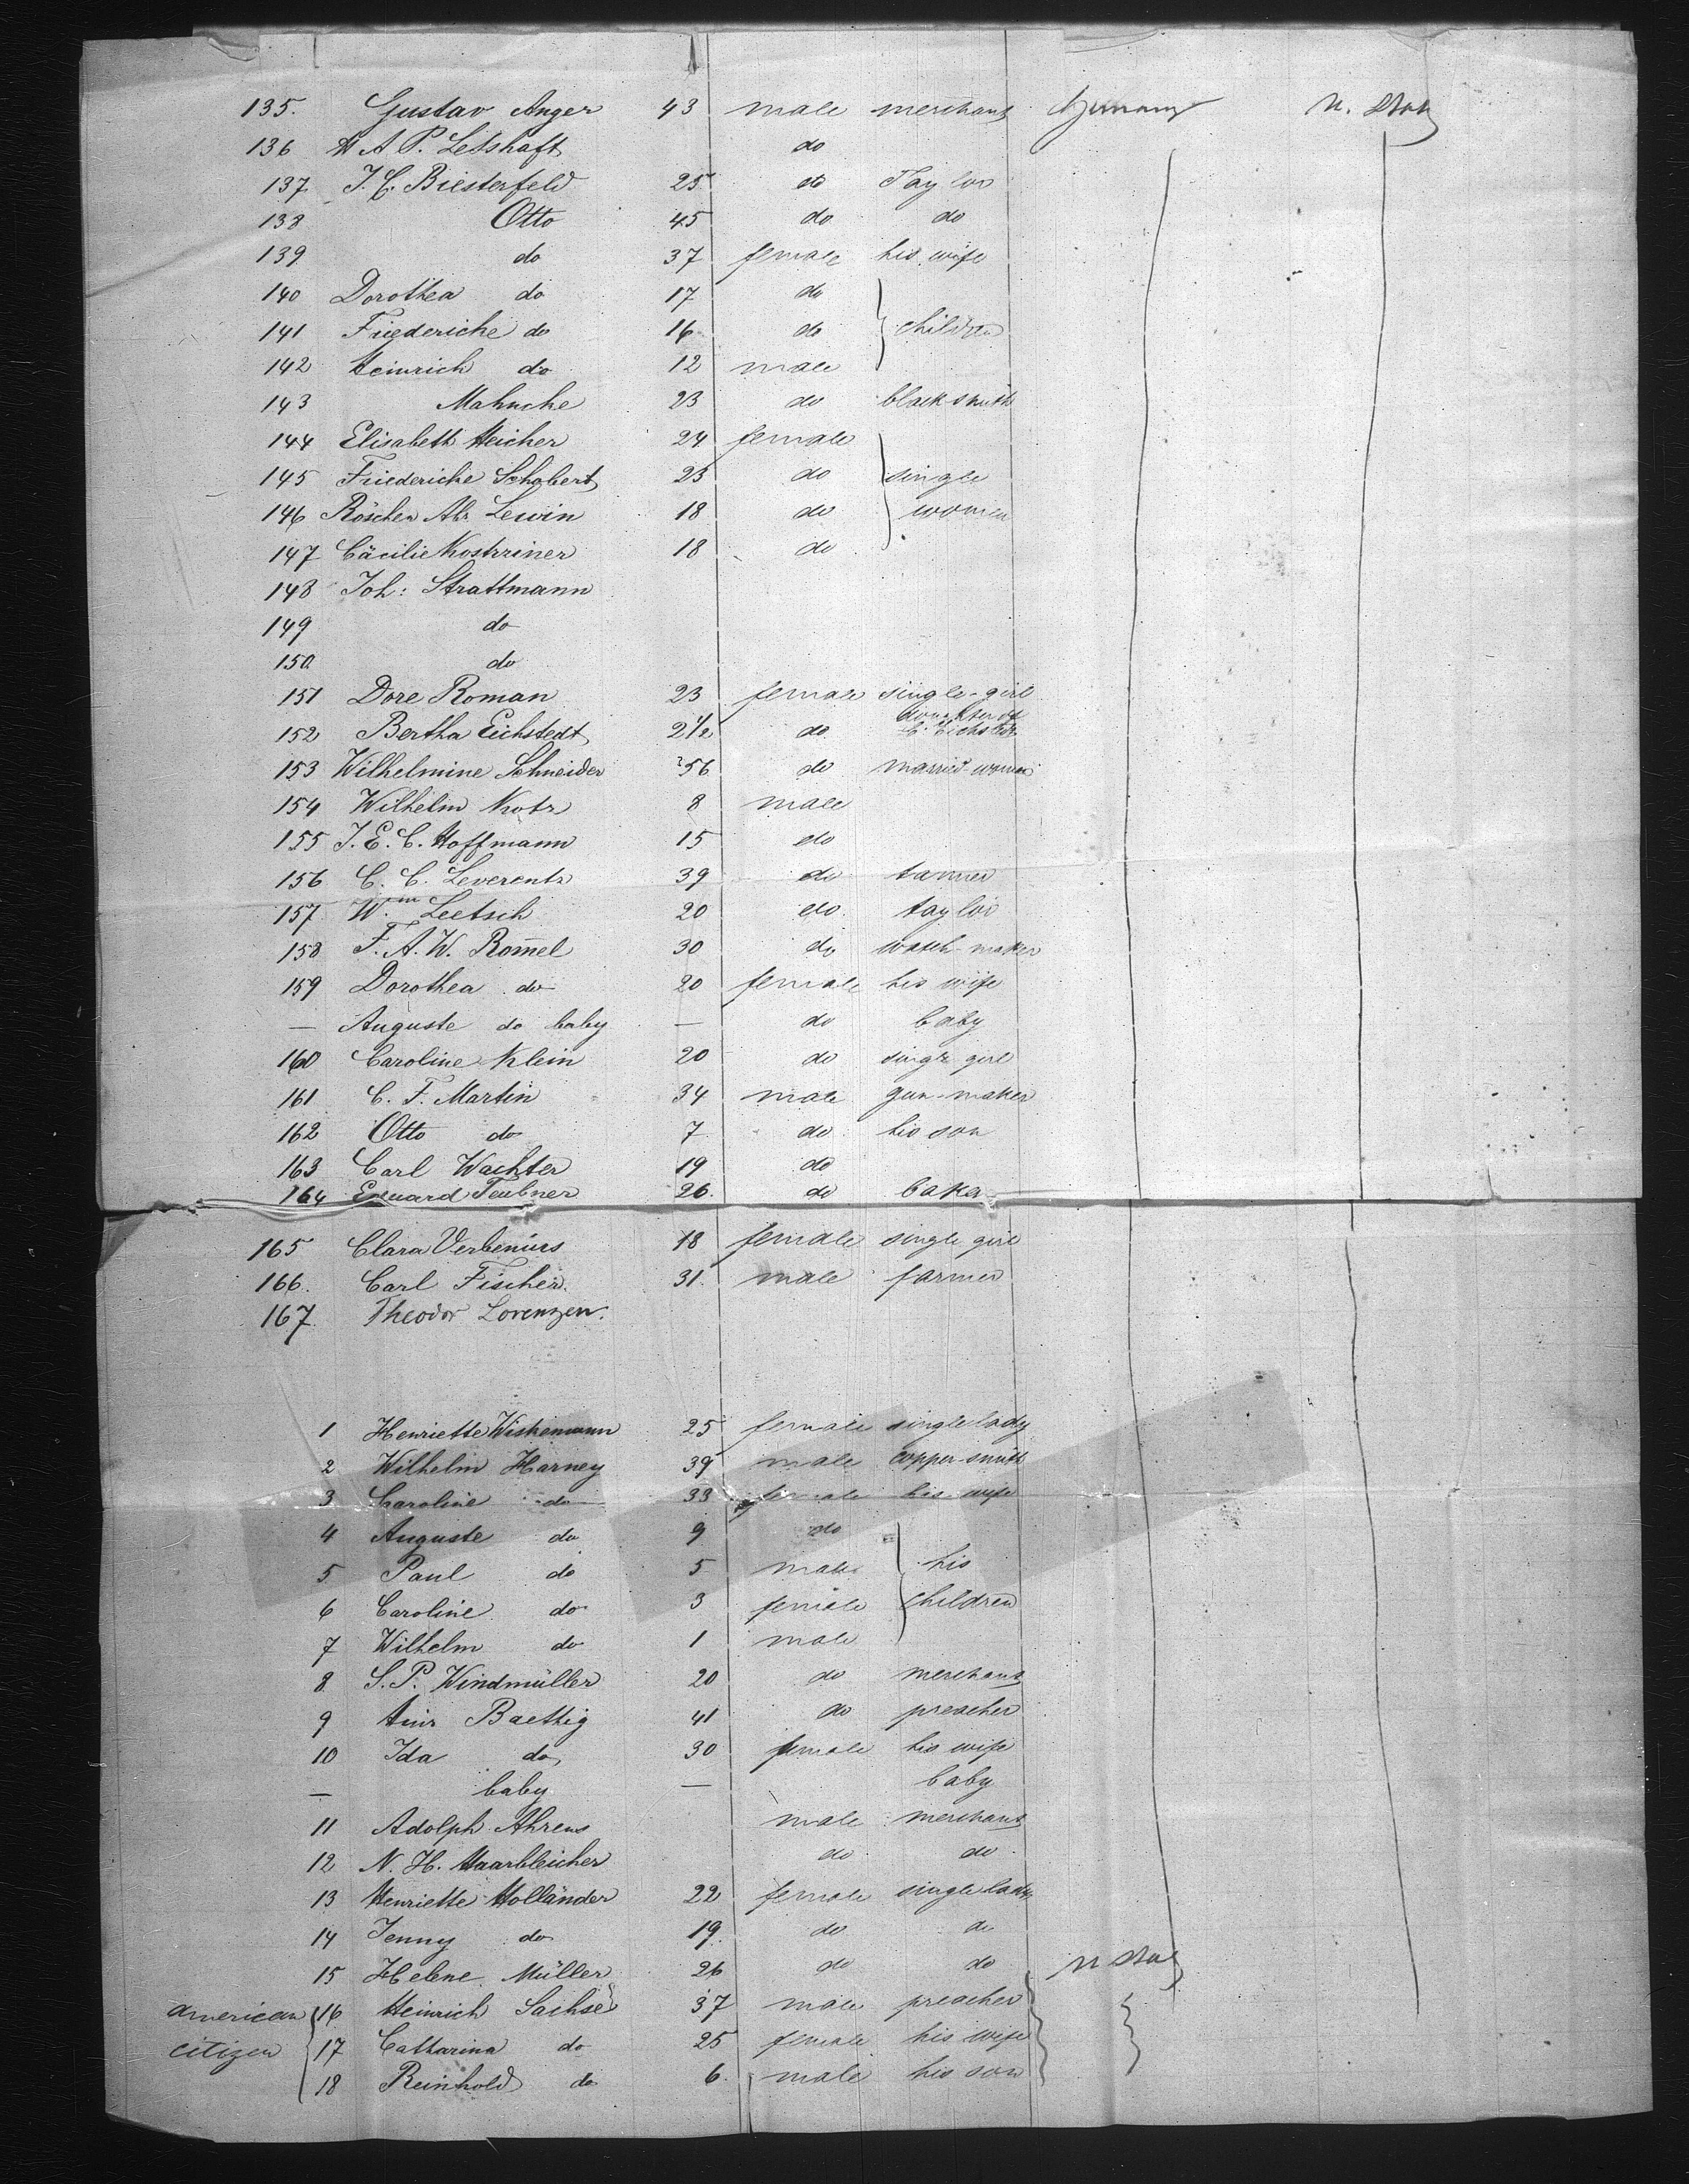 135. Gustav Anger 43 male merchant Germany U. Stat
136 A P. Letshaft do
137 J. C. Biesterfeld 25 do Taylor
138 Otto 45 do do
139 do 37 female his wife
140 Dorothea do 17 do
141 Friederiche do 16 do children
142 Heinrich do 12 male
143 Mahnche 23 do blacksmith
144 Elisabeth Heicher 24 female
145 Friederiche Schobert 23 do single
146 Röschen Abr. Lewin 18 do women
147 Cäcilie Kostriner 18 do
148 Joh: Strattmann
149 do
150 do
151 Dore Roman 23 female single-girl
152 Bertha Eichstedt 2 1/2 do daughter of C. Eichstedt
153 Wilhelmine Schneider 56 do married-woman
154 Wilhelm Kotz 8 male
155 J. E. C. Hoffmann 15 do
156 C. C. Leverentz 39 do tanner
157 Wm Leetsch 20 do taylor
158 F. A. W. Rom̄el 30 do watch-maker
159 Dorothea do 20 female his wife
— Auguste do baby — do baby
160 Caroline Klein 20 do single girl
161 C. F. Martin 34 male gun-maker
162 Otto do 7 do his son
163 Carl Wachter 19 do
164 Eduard Teubner 26. do baker
165 Clara 18 female single girl
166. Carl Fischer. 31. male farmer
167. Theodor Lorenzen.
1 Henriette Wiskemann 25 female single lady
2 Wilhelm Harney 39 male copper-smith
3 Caroline do 33 female his wife
4 Auguste do 9 do
5 Paul do 5 male his
6 Caroline do 3 female children
7 Wilhelm do 1 male
8 S. P. Windmüller 20 do merchant
9 Baethig 41 do preacher
10 Ida do 30 female his wife
— baby — baby
11 Adolph Ahrens male merchant
12 N. H. Haarbleicher do do
13 Henriette Holländer 22 female single lady
14 Jenny do 19. do do
15 Helene Müller 26 do do U Stat
american 16 Heinrich Sachse 37 male preacher
citizen 17 Catharina do 25 female his wife
18 Reinhold do 6. male his son